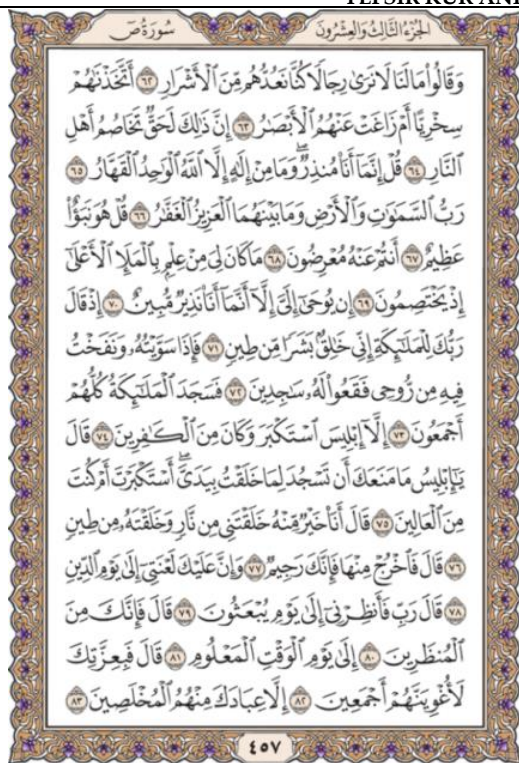 سُورَةُ صٓ
الجُزْءُ الثَّالِثُ وَالعِشْرُونَ
وَقَالُوا۟ مَا لَنَا لَا نَرَىٰ رِجَالًا كُنَّا نَعُدُّهُم مِّنَ ٱلْأَشْرَارِ ٦٢ أَتَّخَذْنَٰهُمْ
سِخْرِيًّا أَمْ زَاغَتْ عَنْهُمُ ٱلْأَبْصَٰرُ ٦٣ إِنَّ ذَٰلِكَ لَحَقٌّ تَخَاصُمُ أَهْلِ
ٱلنَّارِ ٦٤ قُلْ إِنَّمَآ أَنَا۠ مُنذِرٌ ۖ وَمَا مِنْ إِلَٰهٍ إِلَّا ٱللَّهُ ٱلْوَٰحِدُ ٱلْقَهَّارُ ٦٥
رَبُّ ٱلسَّمَٰوَٰتِ وَٱلْأَرْضِ وَمَا بَيْنَهُمَا ٱلْعَزِيزُ ٱلْغَفَّٰرُ ٦٦ قُلْ هُوَ نَبَؤٌا۟
عَظِيمٌ ٦٧ أَنتُمْ عَنْهُ مُعْرِضُونَ ٦٨ مَا كَانَ لِىَ مِنْ عِلْمٍۭ بِٱلْمَلَإِ ٱلْأَعْلَىٰٓ
إِذْ يَخْتَصِمُونَ ٦٩ إِن يُوحَىٰٓ إِلَىَّ إِلَّآ أَنَّمَآ أَنَا۠ نَذِيرٌ مُّبِينٌ ٧٠ إِذْ قَالَ
رَبُّكَ لِلْمَلَٰٓئِكَةِ إِنِّى خَٰلِقٌۢ بَشَرًا مِّن طِينٍ ٧١ فَإِذَا سَوَّيْتُهُۥ وَنَفَخْتُ
فِيهِ مِن رُّوحِى فَقَعُوا۟ لَهُۥ سَٰجِدِينَ ٧٢ فَسَجَدَ ٱلْمَلَٰٓئِكَةُ كُلُّهُمْ
أَجْمَعُونَ ٧٣ إِلَّآ إِبْلِيسَ ٱسْتَكْبَرَ وَكَانَ مِنَ ٱلْكَٰفِرِينَ ٧٤ قَالَ
يَٰٓإِبْلِيسُ مَا مَنَعَكَ أَن تَسْجُدَ لِمَا خَلَقْتُ بِيَدَىَّ ۖ أَسْتَكْبَرْتَ أَمْ كُنتَ
مِنَ ٱلْعَالِينَ ٧٥ قَالَ أَنَا۠ خَيْرٌ مِّنْهُ ۖ خَلَقْتَنِى مِن نَّارٍ وَخَلَقْتَهُۥ مِن طِينٍ
٧٦ قَالَ فَٱخْرُجْ مِنْهَا فَإِنَّكَ رَجِيمٌ ٧٧ وَإِنَّ عَلَيْكَ لَعْنَتِىٓ إِلَىٰ يَوْمِ ٱلدِّينِ
٧٨ قَالَ رَبِّ فَأَنظِرْنِىٓ إِلَىٰ يَوْمِ يُبْعَثُونَ ٧٩ قَالَ فَإِنَّكَ مِنَ
ٱلْمُنظَرِينَ ٨٠ إِلَىٰ يَوْمِ ٱلْوَقْتِ ٱلْمَعْلُومِ ٨١ قَالَ فَبِعِزَّتِكَ
لَأُغْوِيَنَّهُمْ أَجْمَعِينَ ٨٢ إِلَّا عِبَادَكَ مِنْهُمُ ٱلْمُخْلَصِينَ ٨٣
٤٥٧